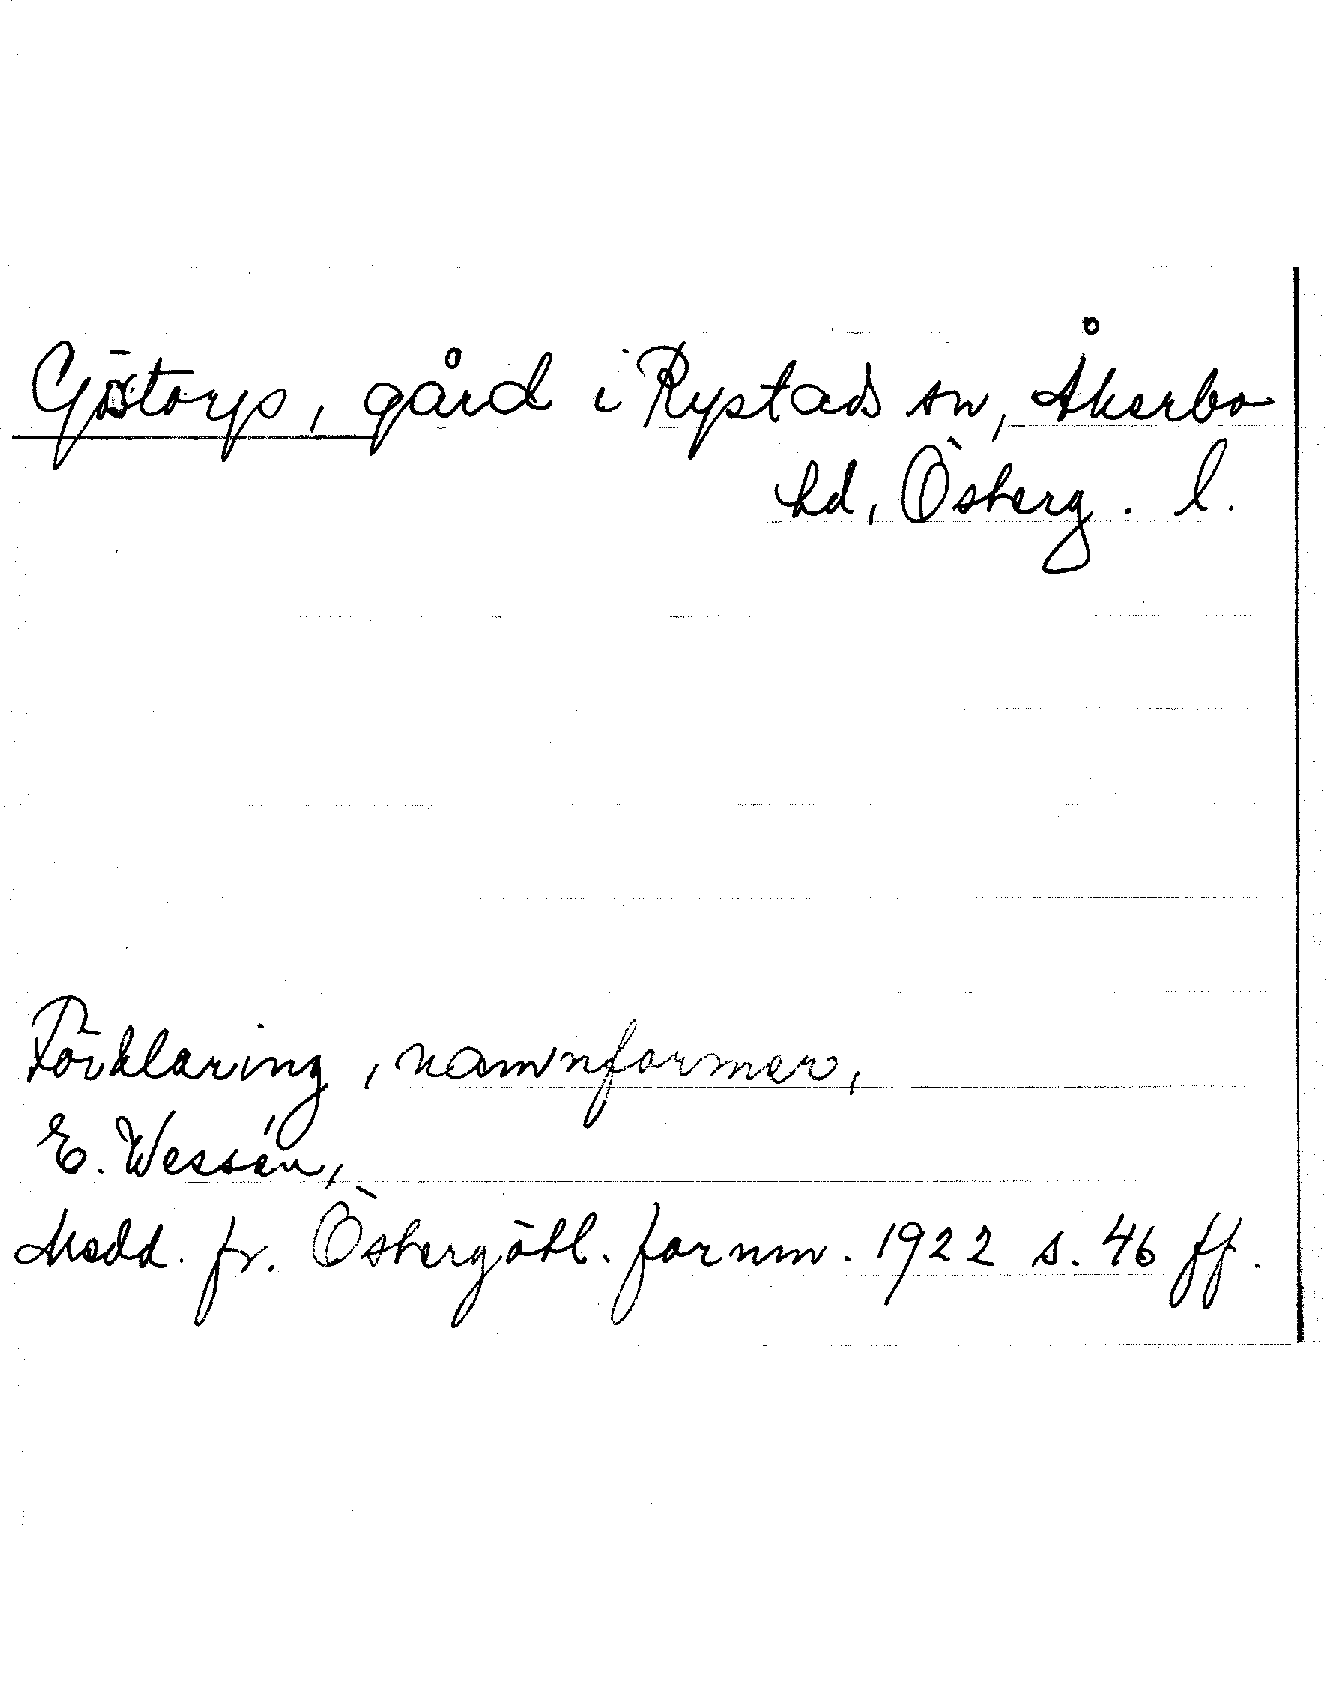 Göstorp, gård i Rystads sn, Åkerbo
hd, Österg. l.
Förklaring, namnformer,
E. Wessén,
Medd. fr. Östergötl. fornm. 1922 s. 46 ff.